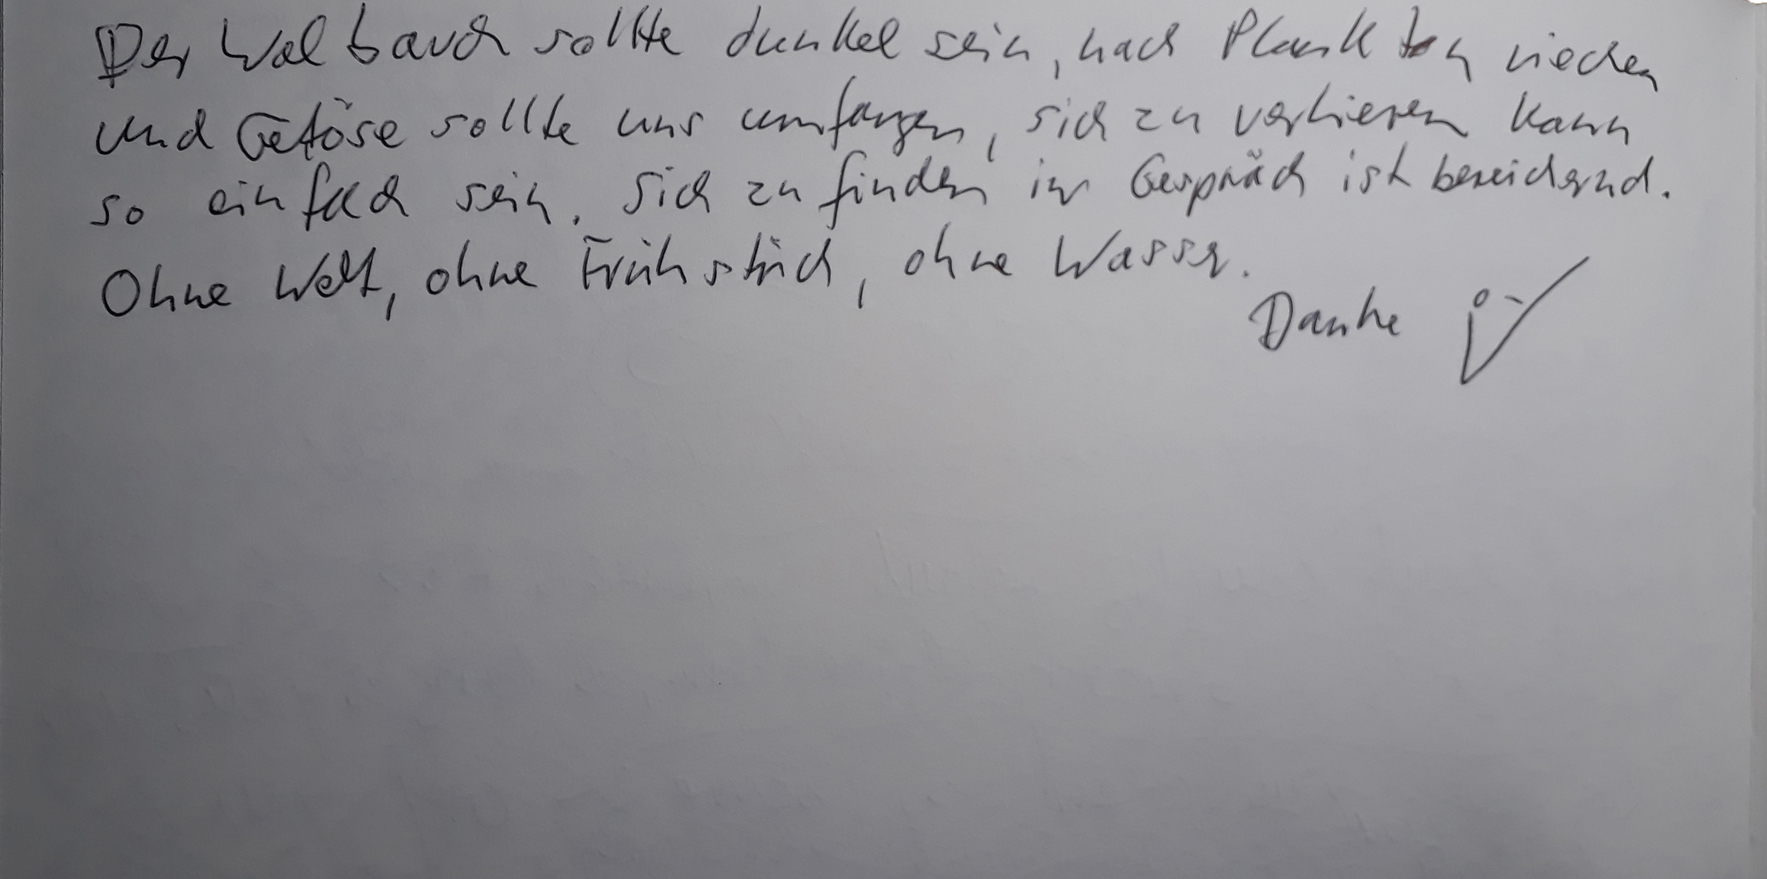 Der Walbauch sollte dunkel sein, nach Plankton riechen
und Getöse sollte uns umfangen, sich zu verlieren kann
so einfach sein. Sich zu finden im Gespräch ist bereichernd.
Ohne Welt, ohne Frühstück, ohne Wasser.
Danke